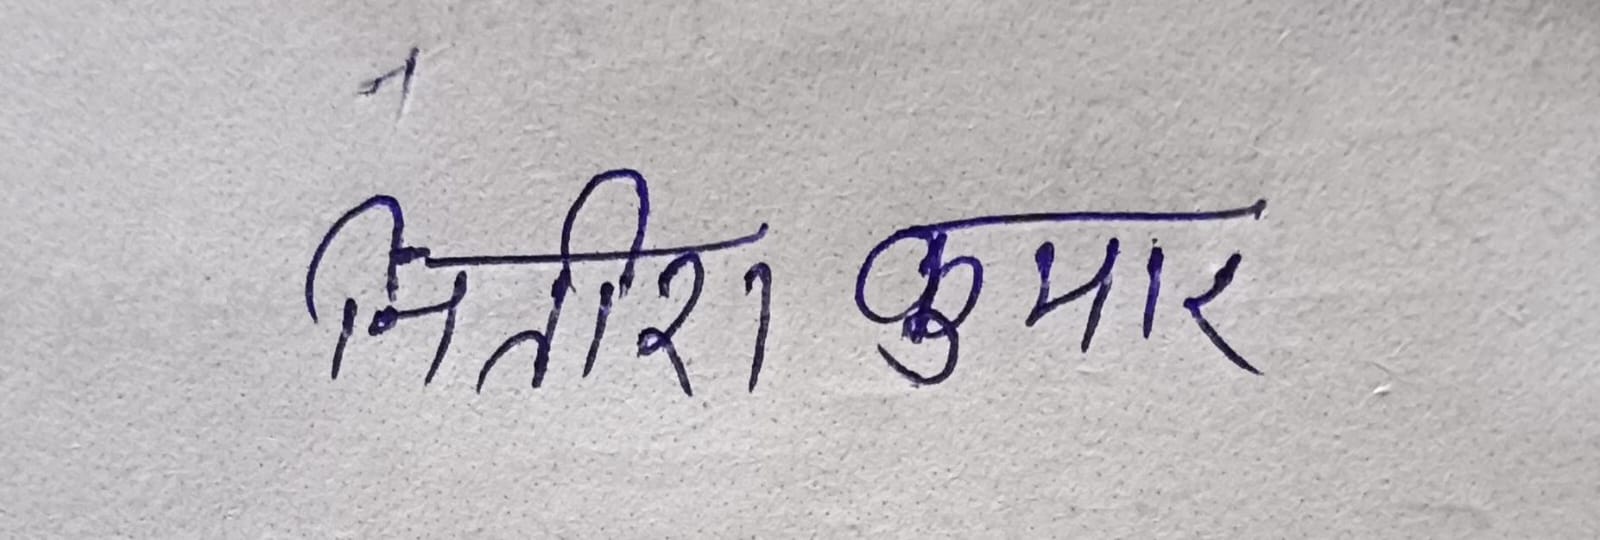 नितीश कुमार